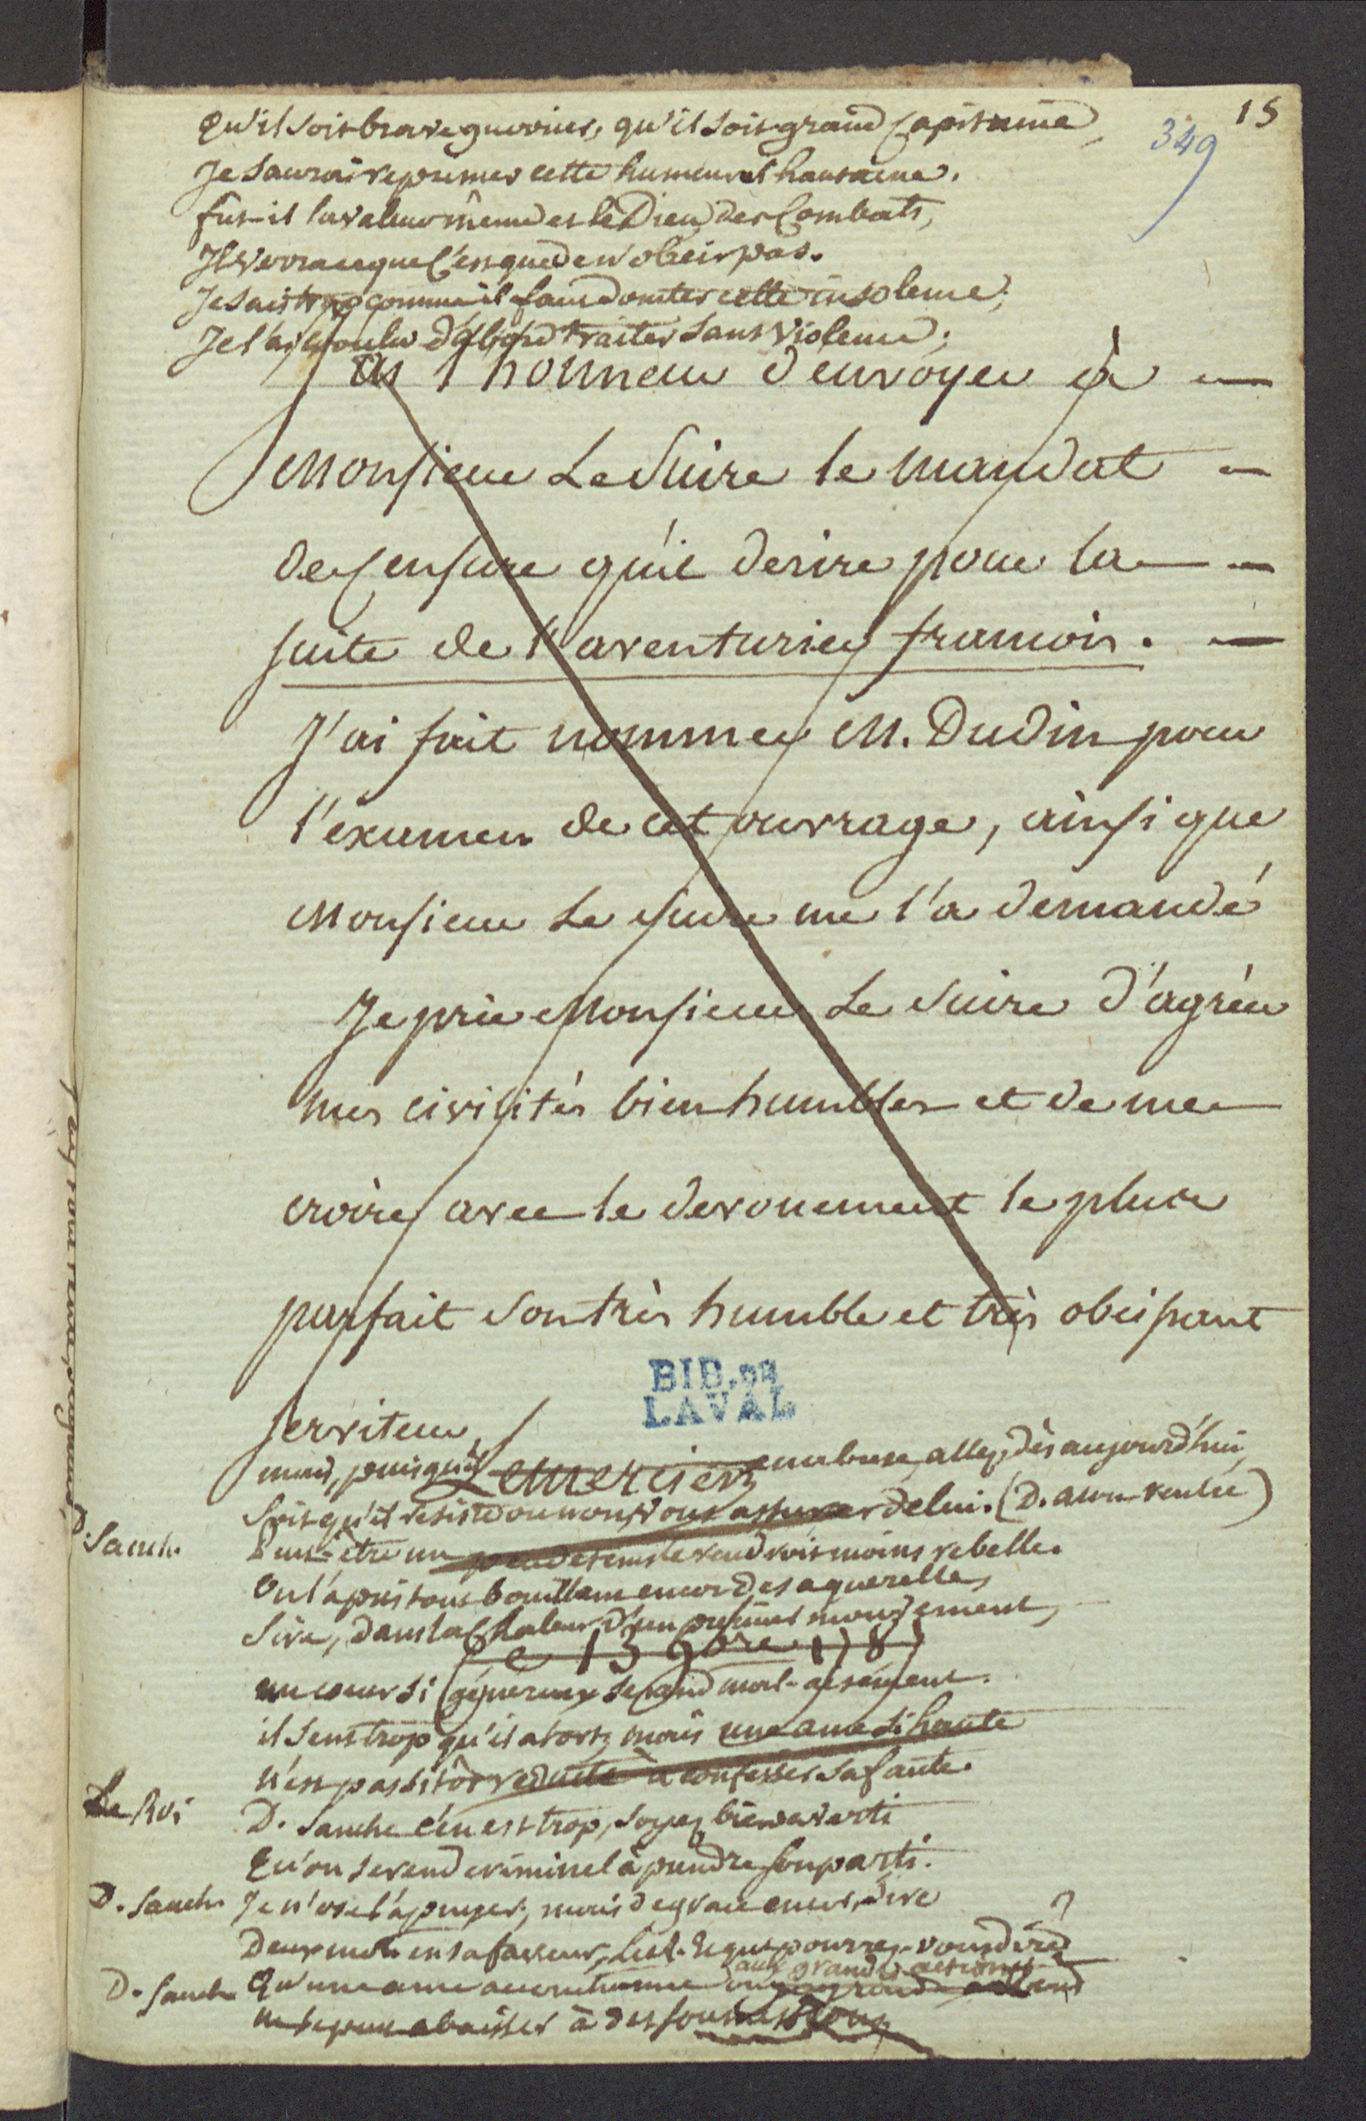 15
349
Qu'il soit brave guerrier, qu'il soit grand Capitaine,
Je saurai reprimer cette humeur si hautaine.
fut-il la valeur même et le Dieu des Combats,
Il verra ce que c'est que de n'obeir pas.
Je sais trop comme il faut domter cette insolence;
Je l'ai voulu d'abord traiter sans violence;
l'honneur d'envoyer à
Monsieur Le Suire le mandat
de Censure qu'il desire pour la
suite de l'aventurier francois.
J'ai fait nommer M. Dudin pour
l'examen de cet ouvrage, ainsi que
Monsieur Le Suire me l'a demandé
Je prie Monsieur Le Suire d'agréer
mes civilités bien humbles et de me
croire avec le devouement le plus
parfait son très humble et très obeissant
BIB. DE
LAVAL
serviteur
mais, puisqu'il en abuse, allez dès aujourd'hui,
Lemercier
Soit qu'il résiste ou non, vous assurer de lui. (D. Alon. rentre)
D. Sanche Peut-être un peu de tems le rendroit moins rebelle.
On l'a pris tout bouillant encor de sa querelle,
Sire, dans la Chaleur d'un premier mouvement,
Ce 13 9bre 178
un coeur si généreux se rend mal-aisément.
il sent trop qu'il a tort, mais une ame si haute
n'est pas sitôt reduite à confesser sa faute.
Le Roi D. Sanche c'en est trop, soyez bien averti
Qu'on se rend criminel à prendre son parti.
D. Sanche Je n'ose l'apuyer; mais de grace encor, Sire
Deux mots en sa faveur, Le R. Et que pourrez-vous dire?
aux grandes actions
D. Sanche Qu'une ame accoutumée
ne se peut abaisser à des soumissions